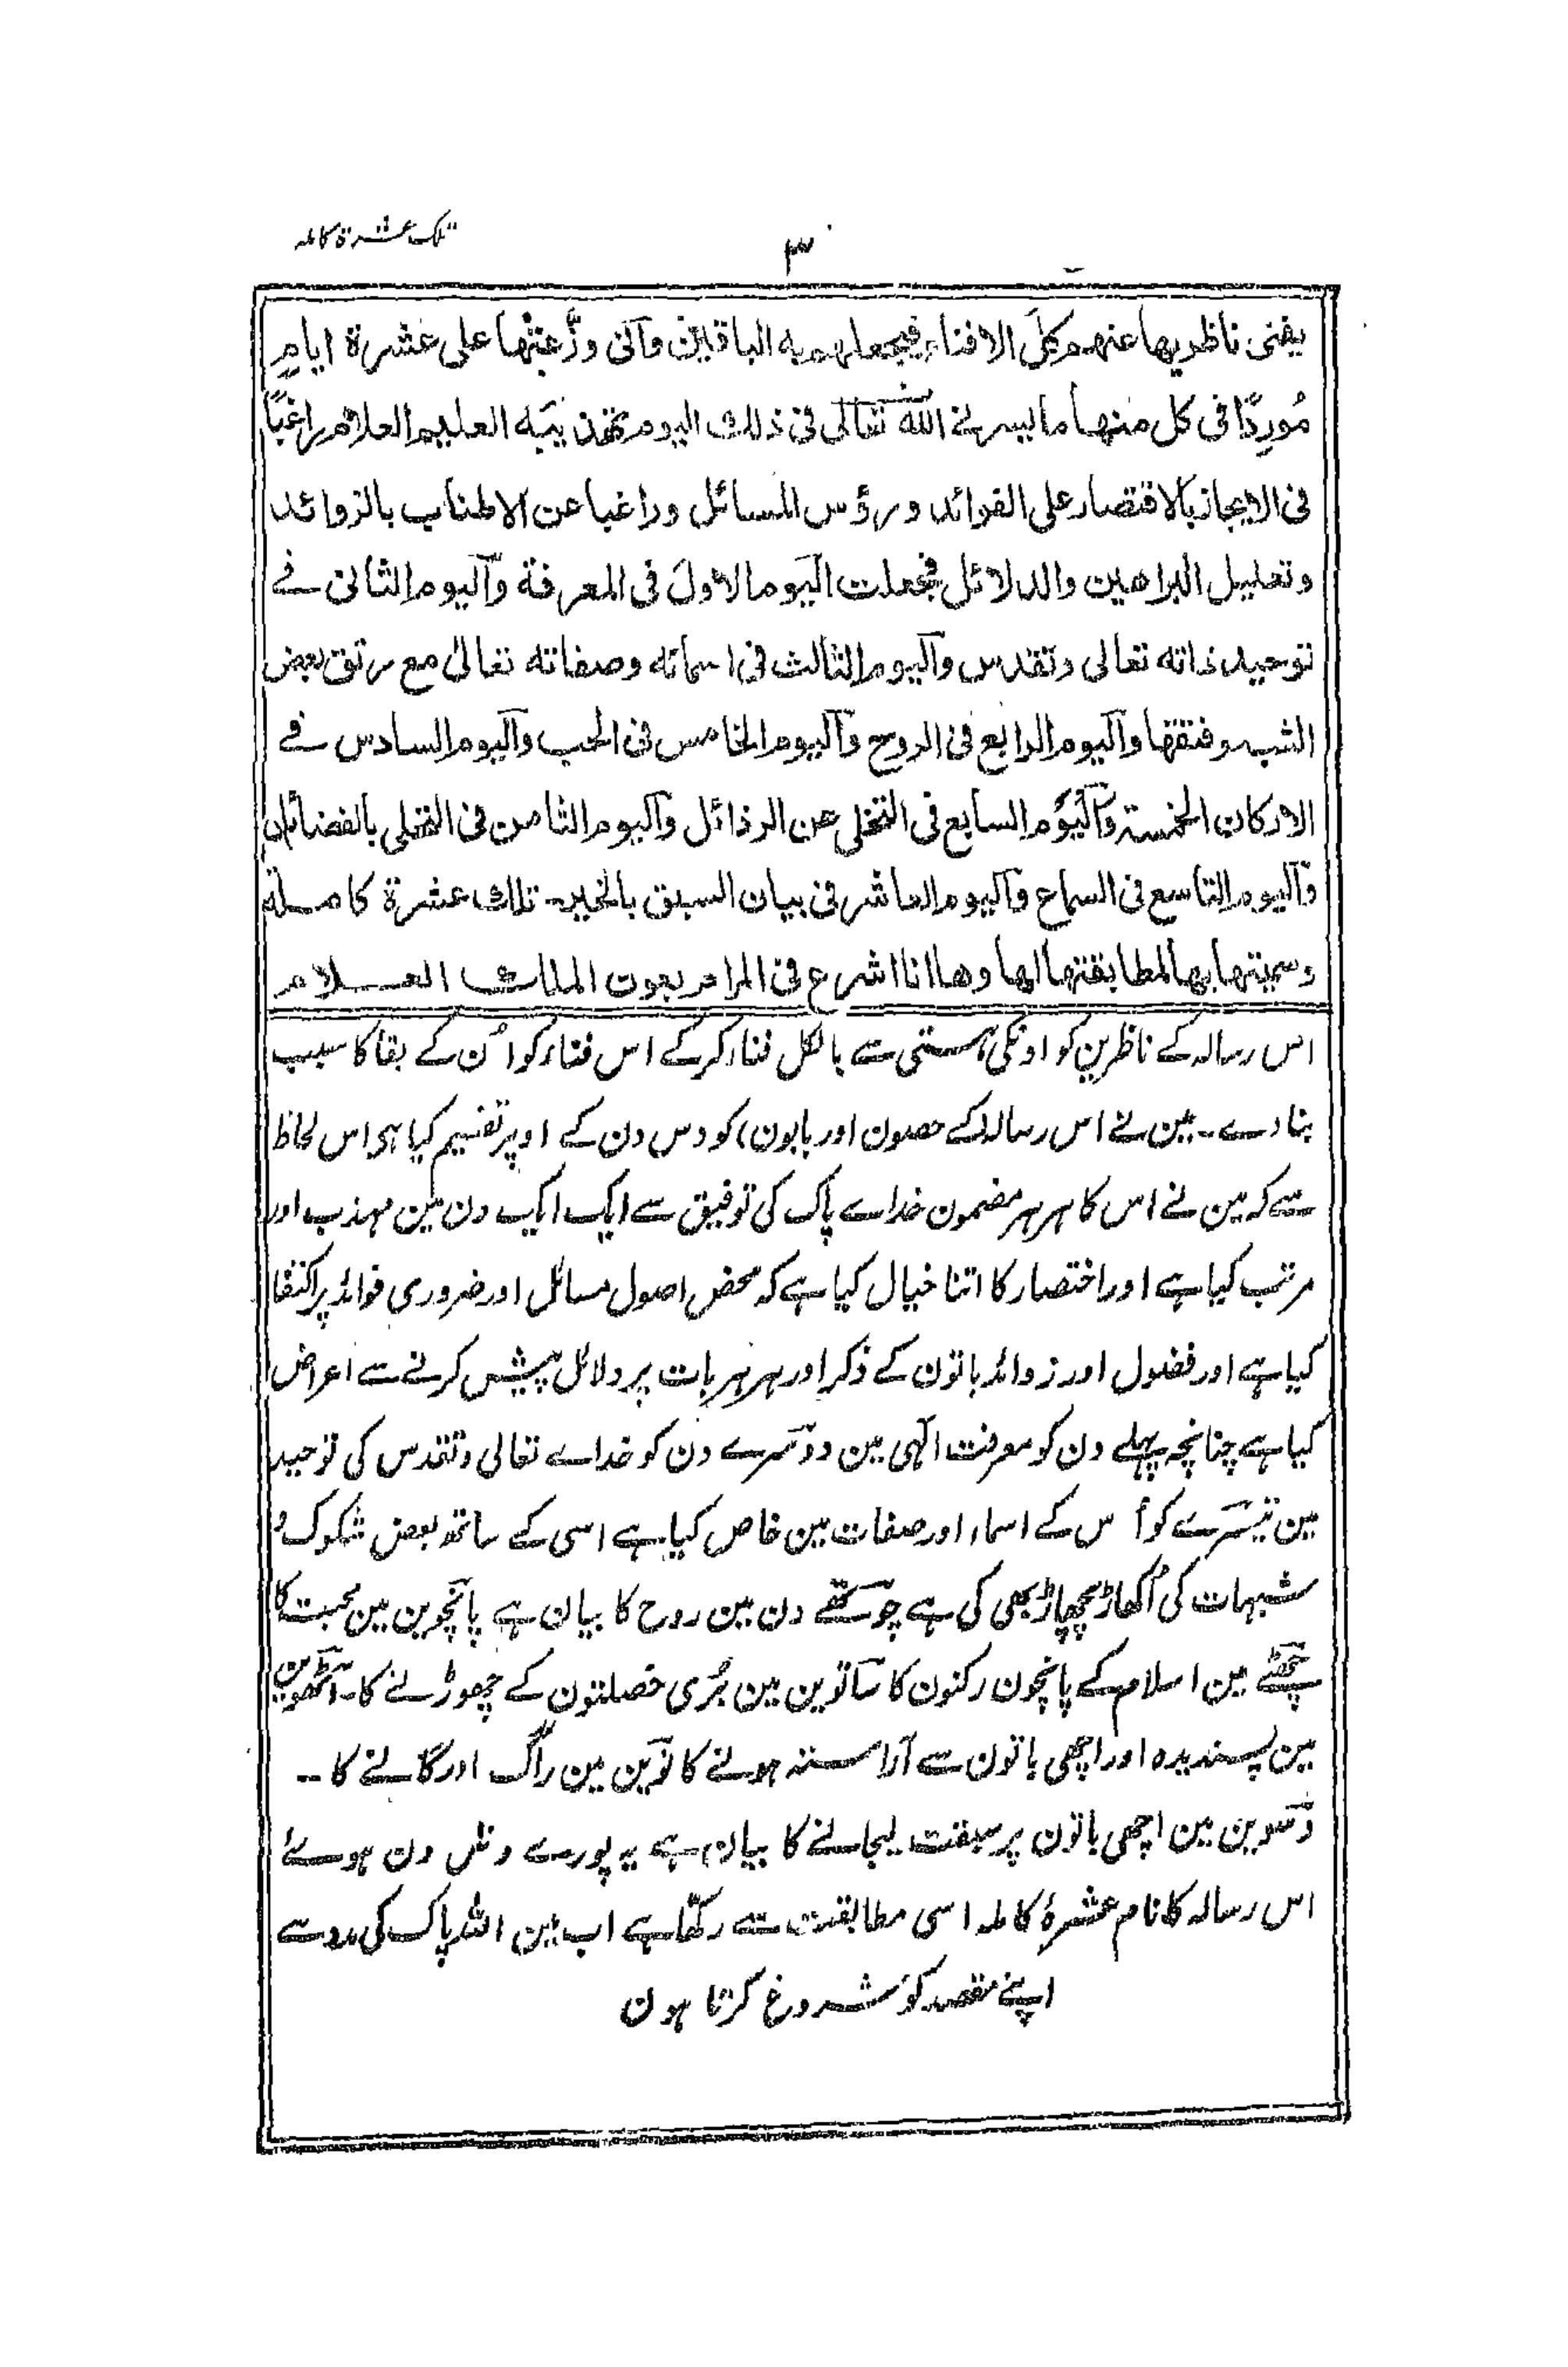 تلک عشرة کاملہ
۳
یفنی ناظریها عنهم کل الافناء فیجعلهم به الباقین وآنی وزّعتُها علی عشرة ایامٍ
مُورِدًا فی کل منها ما یسرنے الله تعالی فی ذلك الیوم تهذیبَه العلیم العلام راغبًا
فی الایجاز بالاقتصار علی الفوائد ورؤس المسائل وراغبا عن الاطناب بالزوائد
وتعلیل البراهین والدلائل فجعلت الیوم الاول فی المعرفة والیوم الثانی فے
توحید ذاته تعالی وتقدس والیوم الثالث فی اسمائه وصفاته تعالیٰ مع رتق بعض
الشبه وفتقها والیوم الرابع فی الروح والیوم الخامس فی الحب والیوم السادس فے
الارکان الخمسة والیوم السابع فی التخلی عن الرذائل والیوم الثامن فی التحلی بالفضائل
والیوم التاسع فی السماع والیوم العاشر فی بیان السبق بالخیر۔ تلك عشرة کاملة
وسمیتها بها لمطابقتها لها وها انا اشرع فی المرام بعون الملك العلام
اس رسالہ کے ناظرین کو اونکی ہستی سے بالکل فناء کرکے اس فناء کو اُن کے بقا کا سبب
بنادے۔ مین نے اس رسالہ (کے حصون اور بابون) کو دس دن کے اوپر تقسیم کیا ہی اس لحاظ
سے کہ مین نے اس کا ہر ہر مضمون خداے پاک کی توفیق سے ایک ایک دن مین مہذب اور
مرتب کیا ہے اور اختصار کا اتنا خیال کیا ہے کہ محض اصول مسائل اور ضروری فوائد پر اکتفا
کیا ہے اور فضول اور زوائد باتون کے ذکر اور ہر ہر بات پر دلائل پیش کرنے سے اعراض
کیا ہے چنانچہ پہلے دن کو معرفت الٰہی مین دوسرے دن کو خداے تعالی وتقدس کی توحید
مین تیسرے کو اُس کے اسماء اور صفات مین خاص کیا ہے اسی کے ساتھ بعض شکوک و
شبہات کی اُکھاڑ پچھاڑ بھی کی ہے چوتھے دن مین روح کا بیان ہے پانچوین مین محبت کا
چھٹے مین اسلام کے پانچون رکنون کا ساتوین مین بُری خصلتون کے چھوڑنے کا۔ آٹھوین
مین پسندیدہ اور اچھی باتون سے آراستہ ہونے کا نوین مین راگ اور گانے کا ۔۔
دسوین مین اچھی باتون پر سبقت لیجانے کا بیان ہے یہ پورے دس دن ہوئے
اس رسالہ کا نام عشرۂ کاملہ اسی مطابقت سے رکھا ہے اب مین اللہ پاک کی مدد سے
اپنے مقصد کو شروع کرتا ہون